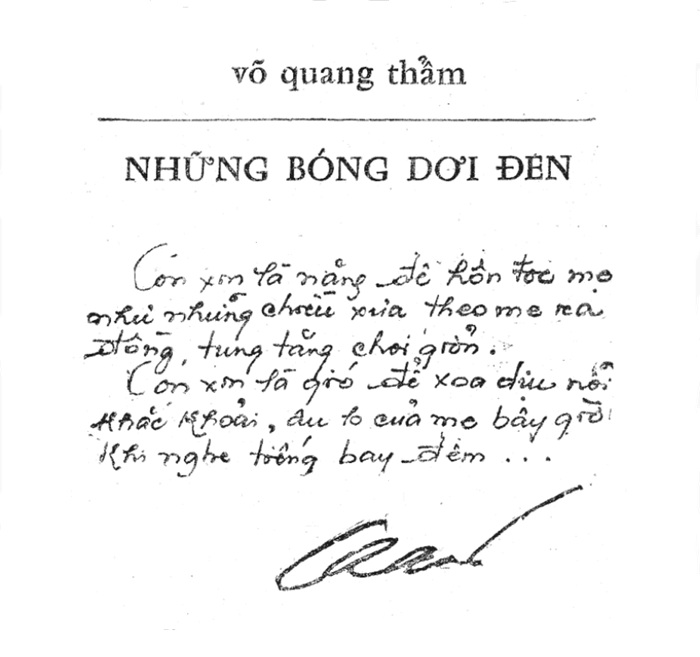 võ quang thẩm
NHỮNG BÓNG DƠI ĐEN
Con xin là nắng để hôn tóc mẹ
như những chiều xưa theo mẹ ra
đồng, tung tăng chơi giỡn.
Con xin là gió để xoa dịu nỗi
khắc khoải, âu lo của mẹ bây giờ
khi nghe tiếng bay đêm ...